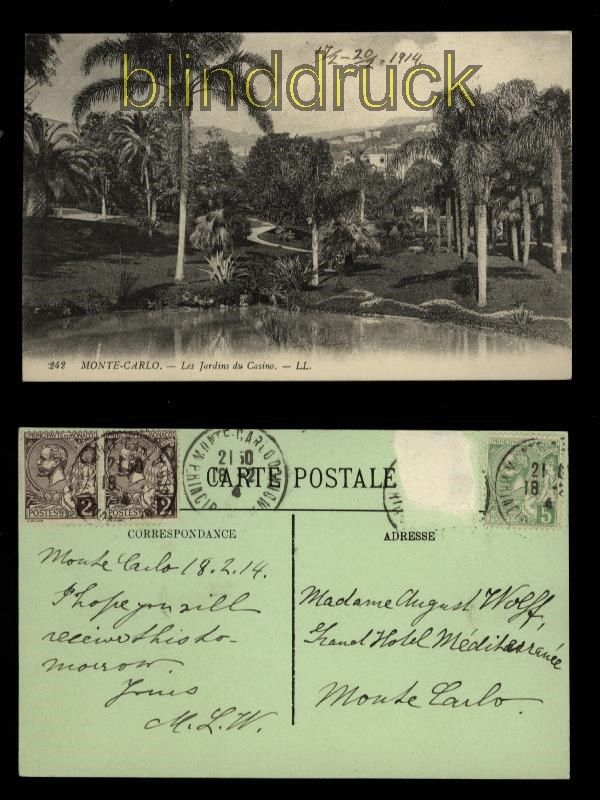 17/2-20/2.1914
blinddruck
242 MONTE-CARLO. — Les Jardins du Casino. — LL.
PRINCIPAUTÉ DE MONACO
2
2
MONTE-CARLO
21 50
18 2
5
CARTE POSTALE
CORRESPONDANCE
ADRESSE
Monte Carlo 18.2.14.
I hope you will
receive this to-
morrow.
Yours
M.L.W.
Madame August Wolff,
Grand Hotel Méditerranée
Monte Carlo.